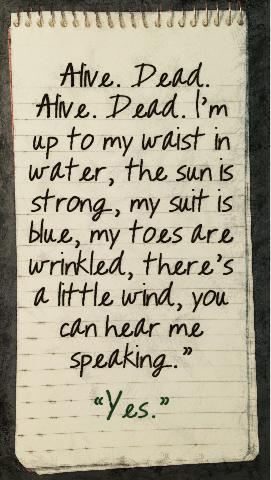 Alive. Dead.
Alive. Dead. I'm
up to my waist in
water, the sun is
strong, my suit is
blue, my toes are
wrinkled, there's
a little wind, you
can hear me
speaking.”
“Yes.”